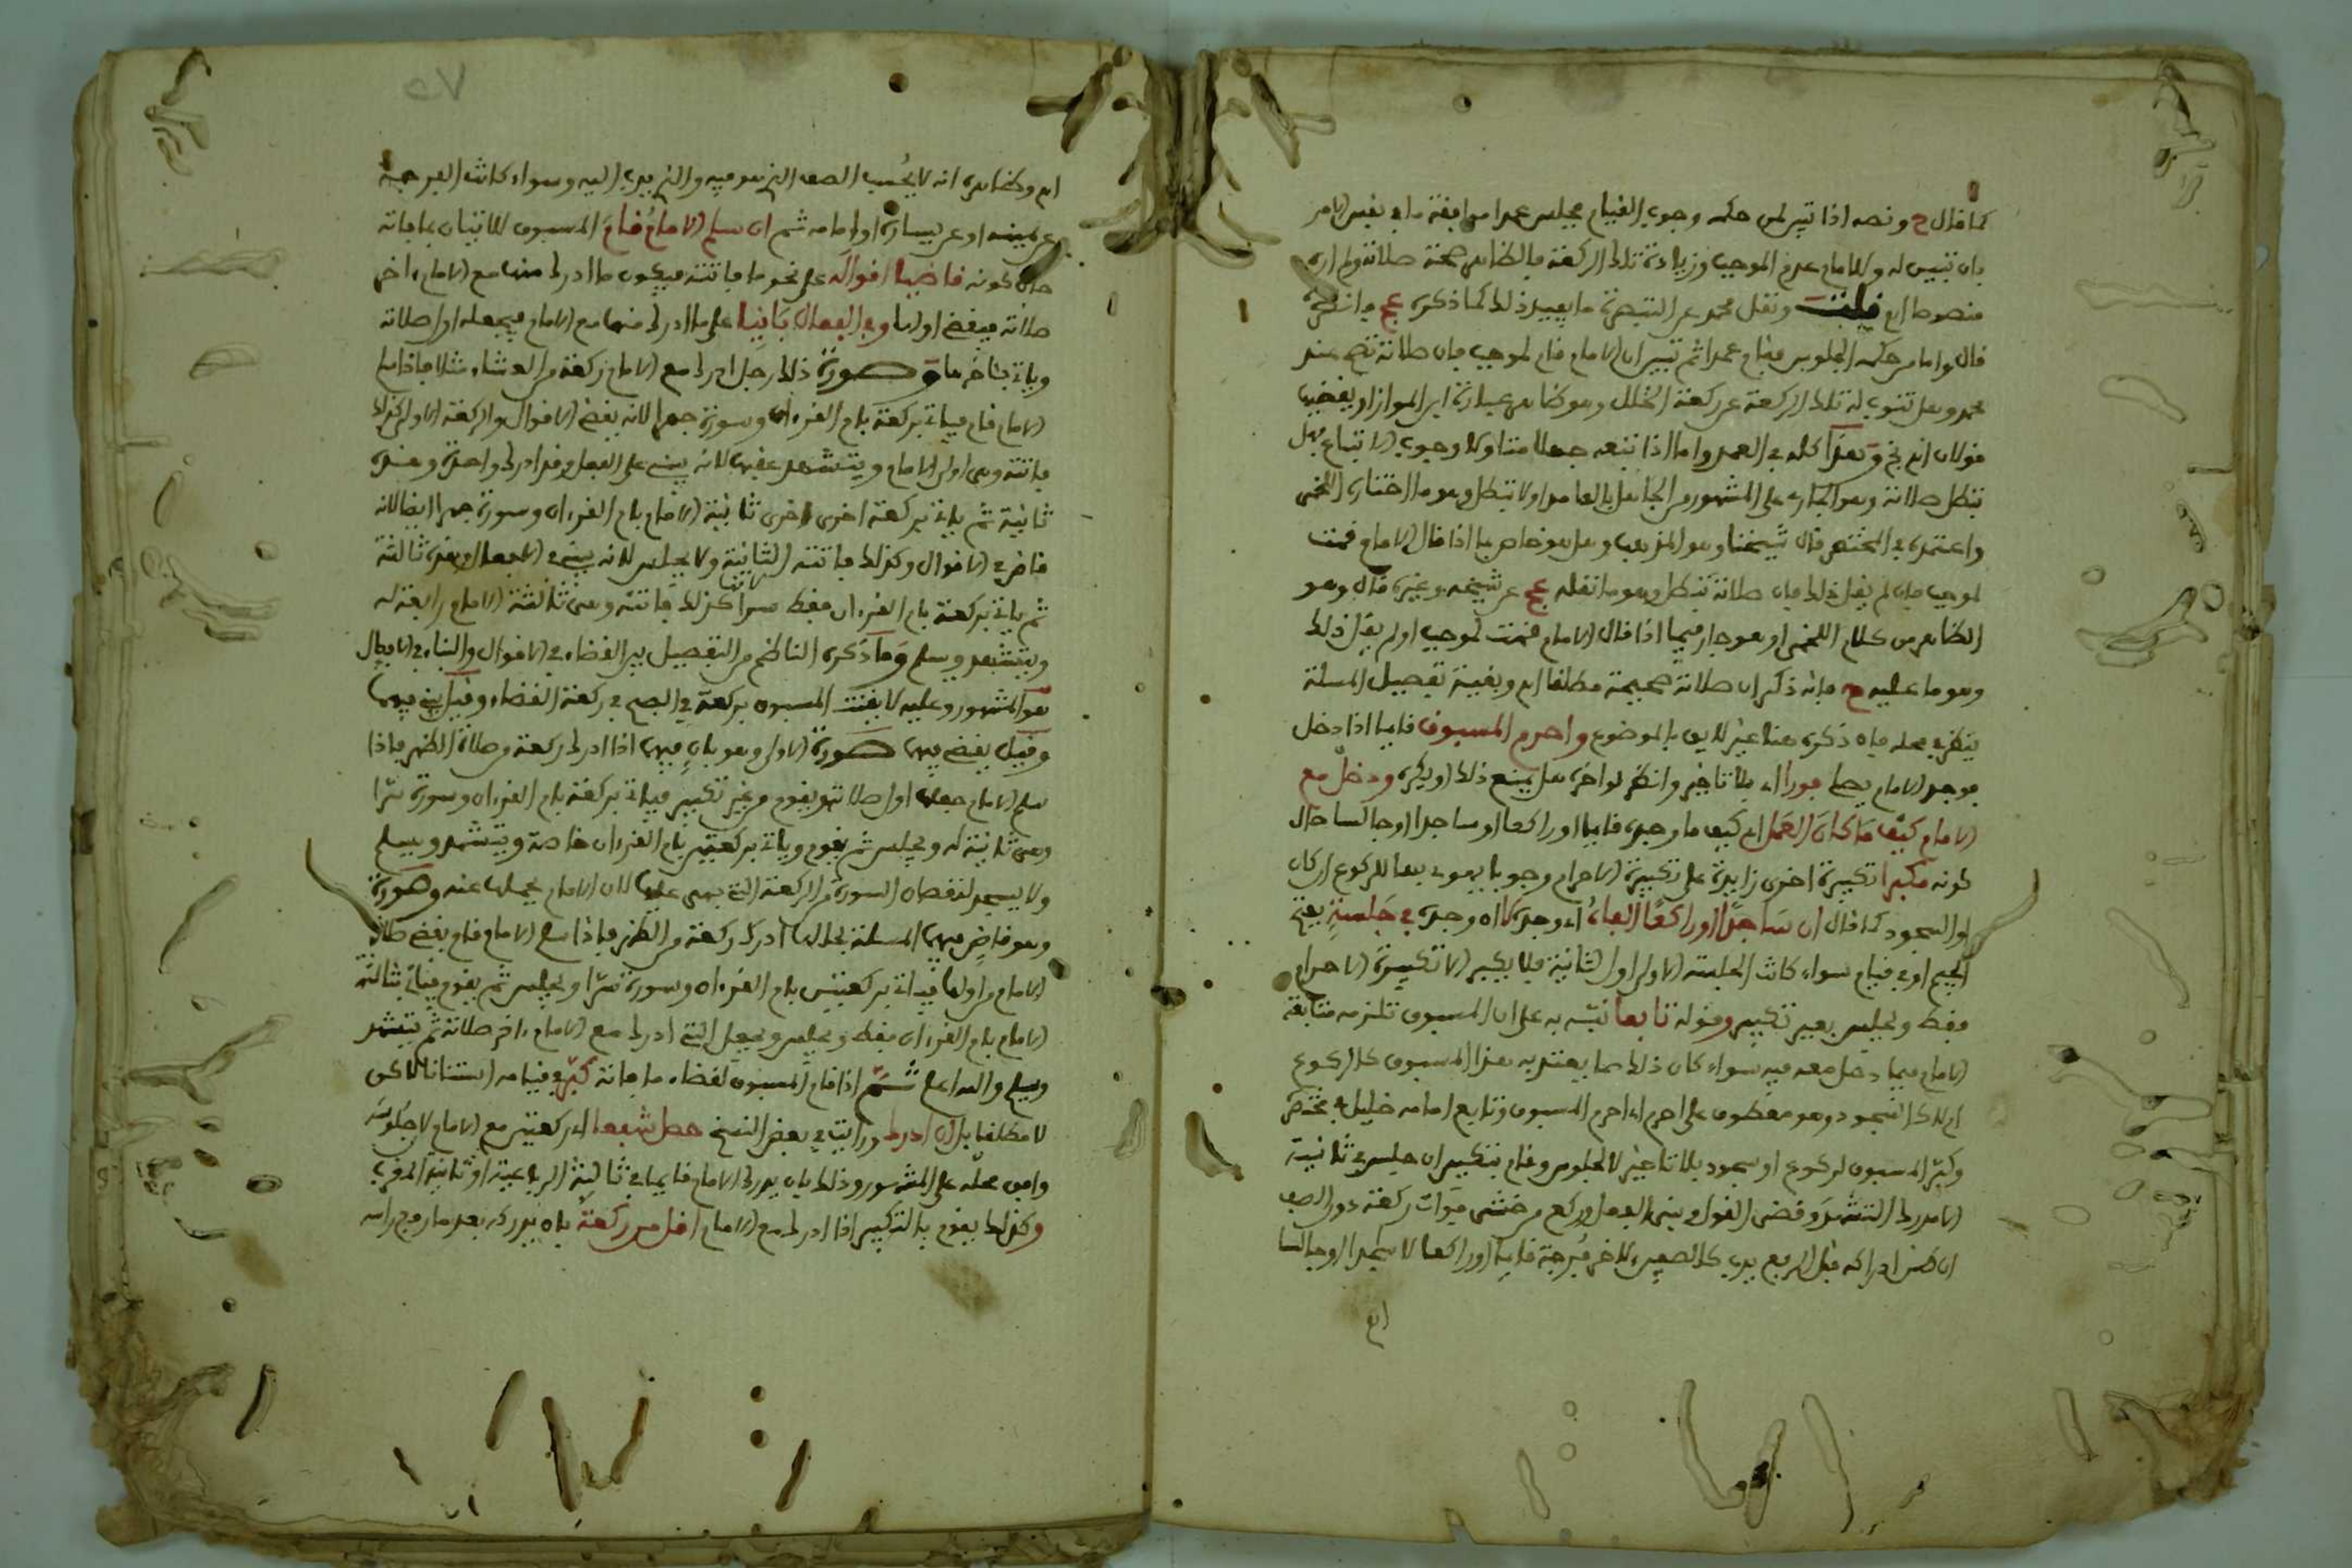 كما قال ح ونصه اذا تبين لمن حكمه وجوب القيام يجلس عمدا موافقة ما في نفس الامر
بان تبين له وللامام عدم الموجب وزيادة تلك الركعة فالظاهر صحة صلاته ولم اره
منصوصا اه قلت ونقل محمد عن التبصرة ما يفيد ذلك كما ذكره عج وانظره
قال واما من حكمه الجلوس فقام عمدا ثم تبين ان الامام قام لموجب فان صلاته تصح عند
محمد وهل تنوب له تلك الركعة عن ركعة الخلل وهو ظاهر عبارة ابن المواز او يقضيها
قولان اه وهذا كله في العمد واما اذا تبعه جهلا متاولا وجوب الاتباع فهل
تبطل صلاته وهو الجاري على المشهور من الجاهل بالعامد او لا تبطل وهو ما اختاره اللخمي
واعتمده في المختصر قال شيخنا وهو المذهب وهل هو خاص بما اذا قال الامام قمت
لموجب فان لم يقل ذلك فان صلاته تبطل وهو ما نقله عج عن شيخه وغيره قال وهو
الظاهر من كلام اللخمي او هو جار فيما اذا قال الامام قمت لموجب او لم يقل ذلك
وهو ما عليه ح فانه ذكر ان صلاته صحيحة مطلقا اه وبقية تفصيل المسلة
ينظر في محله فان ذكره هنا غير لايق بالموضوع واحرم المسبوق قايما اذا دخل
فوجد الامام يصلي فورا اي بلا تاخير وانظر لو اخر هل يمنع ذلك او يكره ودخل مع
الامام كيف ما كان العمل اي كيف ما وجده قايما او راكعا او ساجدا او جالسا حال
كونه مكبرا تكبيرة اخرى زايدة على تكبيرة الاحرام وجوبا يهوي بها للركوع ان كان
او السجود كما قال ان ساجدا او راكعا الفاه اي وجده لا ان وجده في جلسة بفتح
الجيم او في قيام سواء كانت الجلسة الاولى او الثانية فلا يكبر الا تكبيرة الاحرام
فقط ويجلس بغير تكبير وقوله تابعا نبه به على ان المسبوق تلزمه متابعة
الامام فيما دخل معه فيه سواء كان ذلك مما يعتد به هذا المسبوق كالركوع
ام لا كالسجود وهو معطوف على احرم اي احرم المسبوق وتابع امامه خليل في مختصره
وكبر المسبوق لركوع او سجود بلا تاخير لا لجلوس وقام بتكبير ان جلس في ثانيته
الا مدرك التشهد وقضى القول وبنى الفعل وركع من خشي فوات ركعة دون الصف
ان ظن ادراكه قبل الرفع يدب كالصفين لاخر فرجة قايما او راكعا لا ساجدا او جالسا
اه
٥٧
اه وظاهره انه لا يحسب الصف الذي هو فيه والذي يدب اليه وسواء كانت الفرجة
عن يمينه او عن يساره او امامه ثم ان سلم الامام قام المسبوق للاتيان بما فاته
حال كونه قاضيا اقواله على نحو ما فاتته فيكون ما ادرك منها مع الامام ءاخر
صلاته فيقضي اولها وفي الفعال بانيا على ما ادرك منها مع الامام فيجعله اول صلاته
وياتي بـاخرها وصورة ذلك رجل ادرك مع الامام ركعة من العشاء مثلا فاذا سلم
الامام قام فياتي بركعة بام القرءان وسورة جهرا لانه يقضي الاقوال والركعة الاولى كذلك
فاتته وهي اولى الامام ويتشهد عقبها لانه يبني على الفعل وقد ادرك واحدة وهذه
ثانية ثم ياتي بركعة اخرى اخرى ثانية الامام بام القرءان وسورة جهرا ايضا لانه
قاض في الاقوال وكذلك فاتته الثانية ولا يجلس لانه يبني في الافعال وهذه ثالثة
ثم ياتي بركعة بام القرءان فقط سرا كذلك فاتته وهي ثالثة الامام رابعة له
ويتشهد ويسلم وما ذكره الناظم من التفصيل بين القضاء في الاقوال والبناء في الافعال
هو المشهور وعليه لا يقنت المسبوق بركعة في الصبح في ركعة القضاء وقيل يبني فيهما
وقيل يقضي فيهما صورة الاولى وهو بان فيهما اذا ادرك ركعة من صلاة الظهر فاذا
سلم الامام جعلها اول صلاته ويقوم من غير تكبير فياتي بركعة بام القرءان وسورة سرا
وهي ثانية له ويجلس ثم يقوم وياتي بركعتين بام القرءان خاصة ويتشهد ويسلم
ولا يسجد لنقصان السورة من الركعة التي بنى عليها لان الامام يحملها عنه وصورة
وهو قاض فيهما المسلة بحالها ادرك ركعة من الظهر فاذا سلم الامام قام يقضي صلاة
الامام من اولها فياتي بركعتين بام القرءان وسورة سرا ويجلس ثم يقوم فياتي بثالثة
الامام بام القرءان فقط ويجلس ويجعل التي ادرك مع الامام ءاخر صلاته ثم يتشهد
ويسلم والله اعلم ثم اذا قام المسبوق لقضاء ما فاته كبر في قيامه استنانا لاكن
لا مطلقا بل ان ادرك ورايت في بعض النسخ حصل شفعا اي ركعتين مع الامام لا جلوسه
وافق محله على المشهور وذلك بان يدرك الامام قايما في ثالثة الرباعية او ثانية المغرب
وكذلك يقوم بالتكبير اذا ادرك مع الامام اقل من ركعة بان يدركه بعد ما رفع راسه